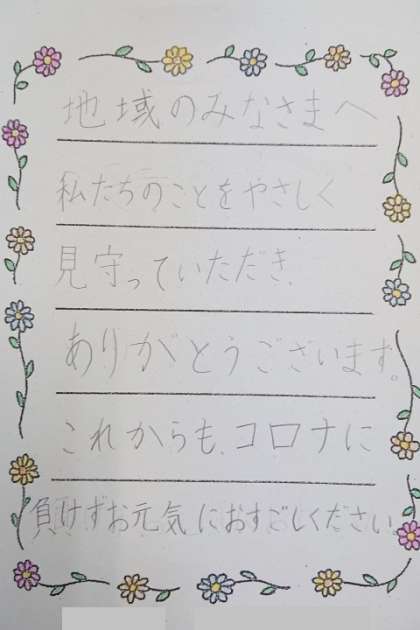 地域のみなさまへ
私たちのことをやさしく
見守っていただき、
ありがとうございます。
これからも、コロナに
負けずお元気におすごしください。